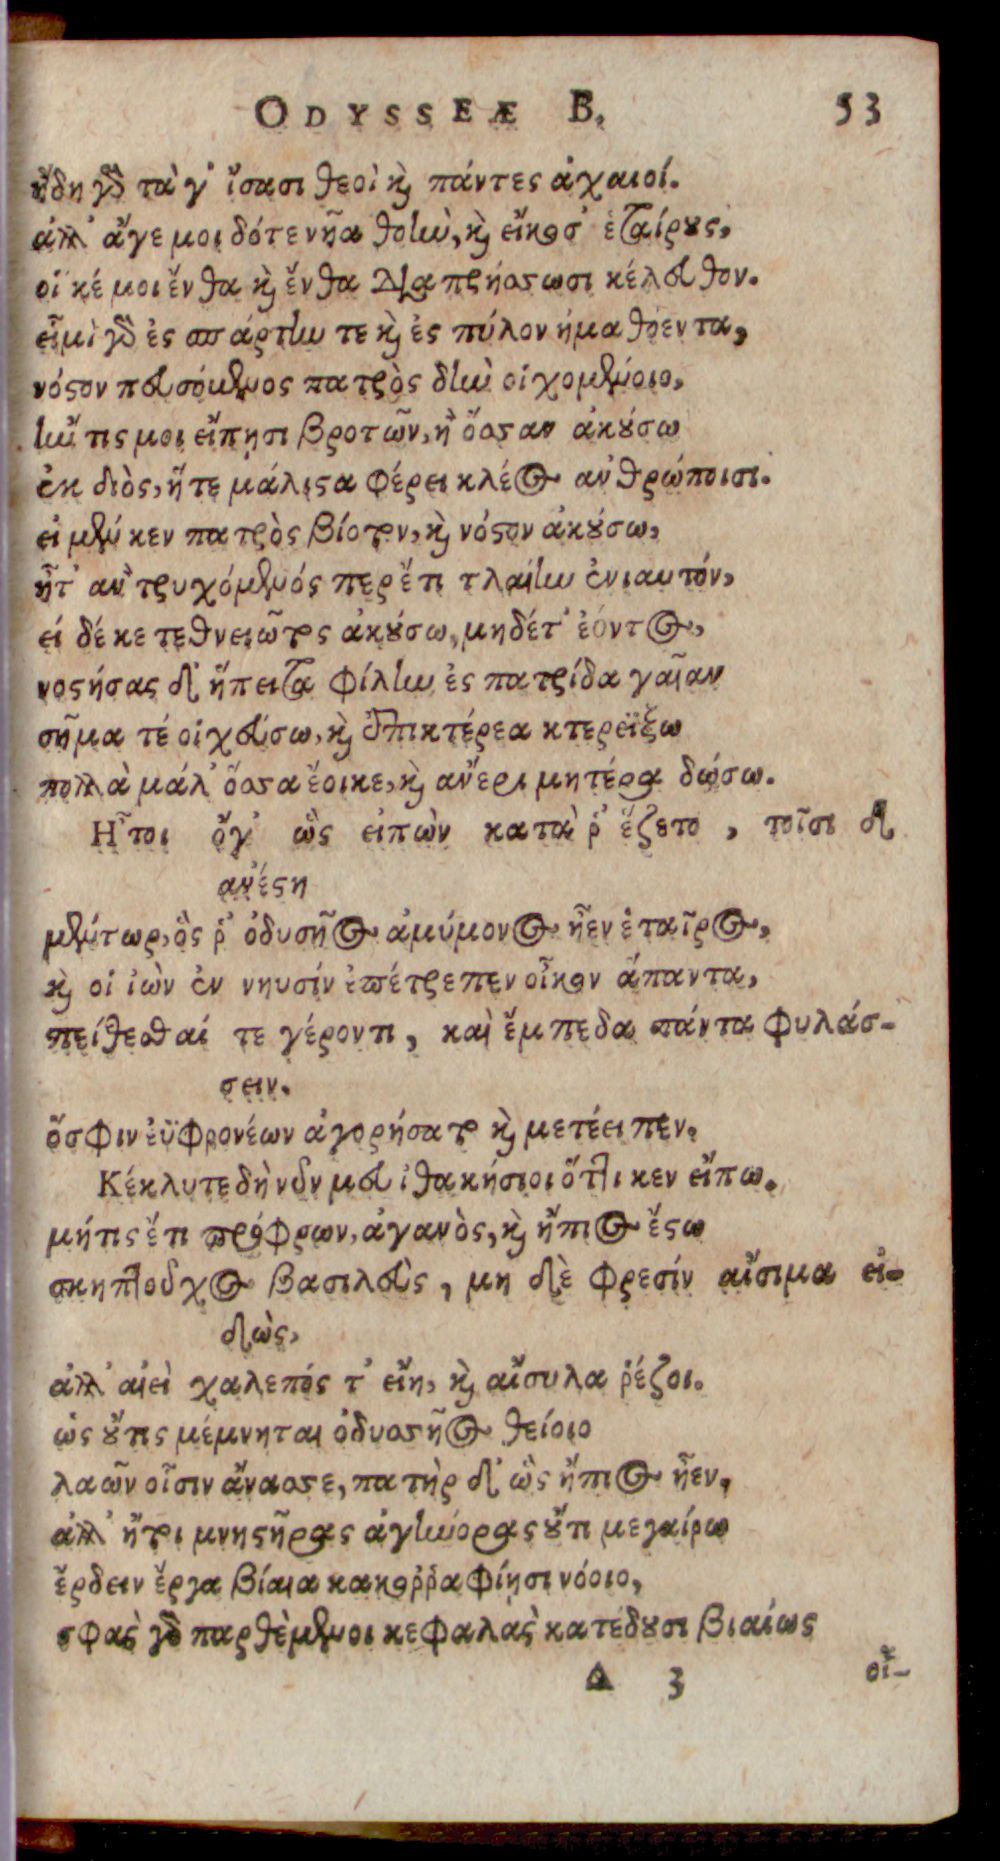 ODYSSEÆ B. 53
ἤδη γὰρ τὰ γ' ἴσασι θεοὶ καὶ πάντες ἀχαιοί.
ἀλλ' ἄγε μοι δότε νῆα θοὴν, καὶ εἴκοσ' ἑταίρους,
οἵ κέ μοι ἔνθα καὶ ἔνθα διαπρήσσωσι κέλευθον.
εἶμι γὰρ ἐς σπάρτην τε καὶ ἐς πύλον ἠμαθόεντα,
νόστον πευσόμενος πατρὸς δὴν οἰχομένοιο,
ἤν τίς μοι εἴπησι βροτῶν, ἢ ὄσσαν ἀκούσω
ἐκ διὸς, ἥτε μάλιστα φέρει κλέος ἀνθρώποισι.
εἰ μέν κεν πατρὸς βίοτον, καὶ νόστον ἀκούσω,
ἦτ' ἂν τρυχόμενός περ ἔτι τλαίην ἐνιαυτόν,
εἰ δέ κε τεθνειῶτος ἀκούσω, μηδέτ' ἐόντος,
νοστήσας δ' ἤπειτα φίλην ἐς πατρίδα γαῖαν
σῆμα τέ οἱ χεύσω, καὶ ἐπικτέρεα κτερεΐξω
πολλὰ μάλ' ὅσσα ἔοικε, καὶ ἀνέρι μητέρα δώσω.
Ἤτοι ὅγ' ὣς εἰπὼν κατὰ ῥ' ἕζετο, τοῖσι δ'
ἀνέστη
μέντωρ, ὅς ῥ' ὀδυσῆος ἀμύμονος ἦεν ἑταῖρος,
καὶ οἱ ἰὼν ἐν νηυσίν ἐπέτρεπεν οἶκον ἅπαντα,
πείθεσθαί τε γέροντι, καὶ ἔμπεδα πάντα φυλάσ-
σειν.
ὅσφιν ἐϋφρονέων ἀγορήσατο καὶ μετέειπεν.
Κέκλυτε δὴ νῦν μευ ἰθακήσιοι ὅττι κεν εἴπω.
μήτις ἔτι πρόφρων, ἀγανὸς, καὶ ἤπιος ἔστω
σκηπτοῦχος βασιλεὺς, μηδὲ φρεσίν αἴσιμα εἰ-
δὼς,
ἀλλ' αἰεὶ χαλεπός τ' εἴη, καὶ αἴσυλα ῥέζοι.
ὡς οὔτις μέμνηται ὀδυσσῆος θείοιο
λαῶν οἷσιν ἄνασσε, πατὴρ δ' ὣς ἤπιος ἦεν,
ἀλλ' ἤτοι μνηστῆρας ἀγήνορας οὔτι μεγαίρω
ἔρδειν ἔργα βίαια κακοῤῥαφίησι νόοιο,
σφὰς γὰρ παρθέμενοι κεφαλὰς κατέδουσι βιαίως
Δ 3 οἶ-